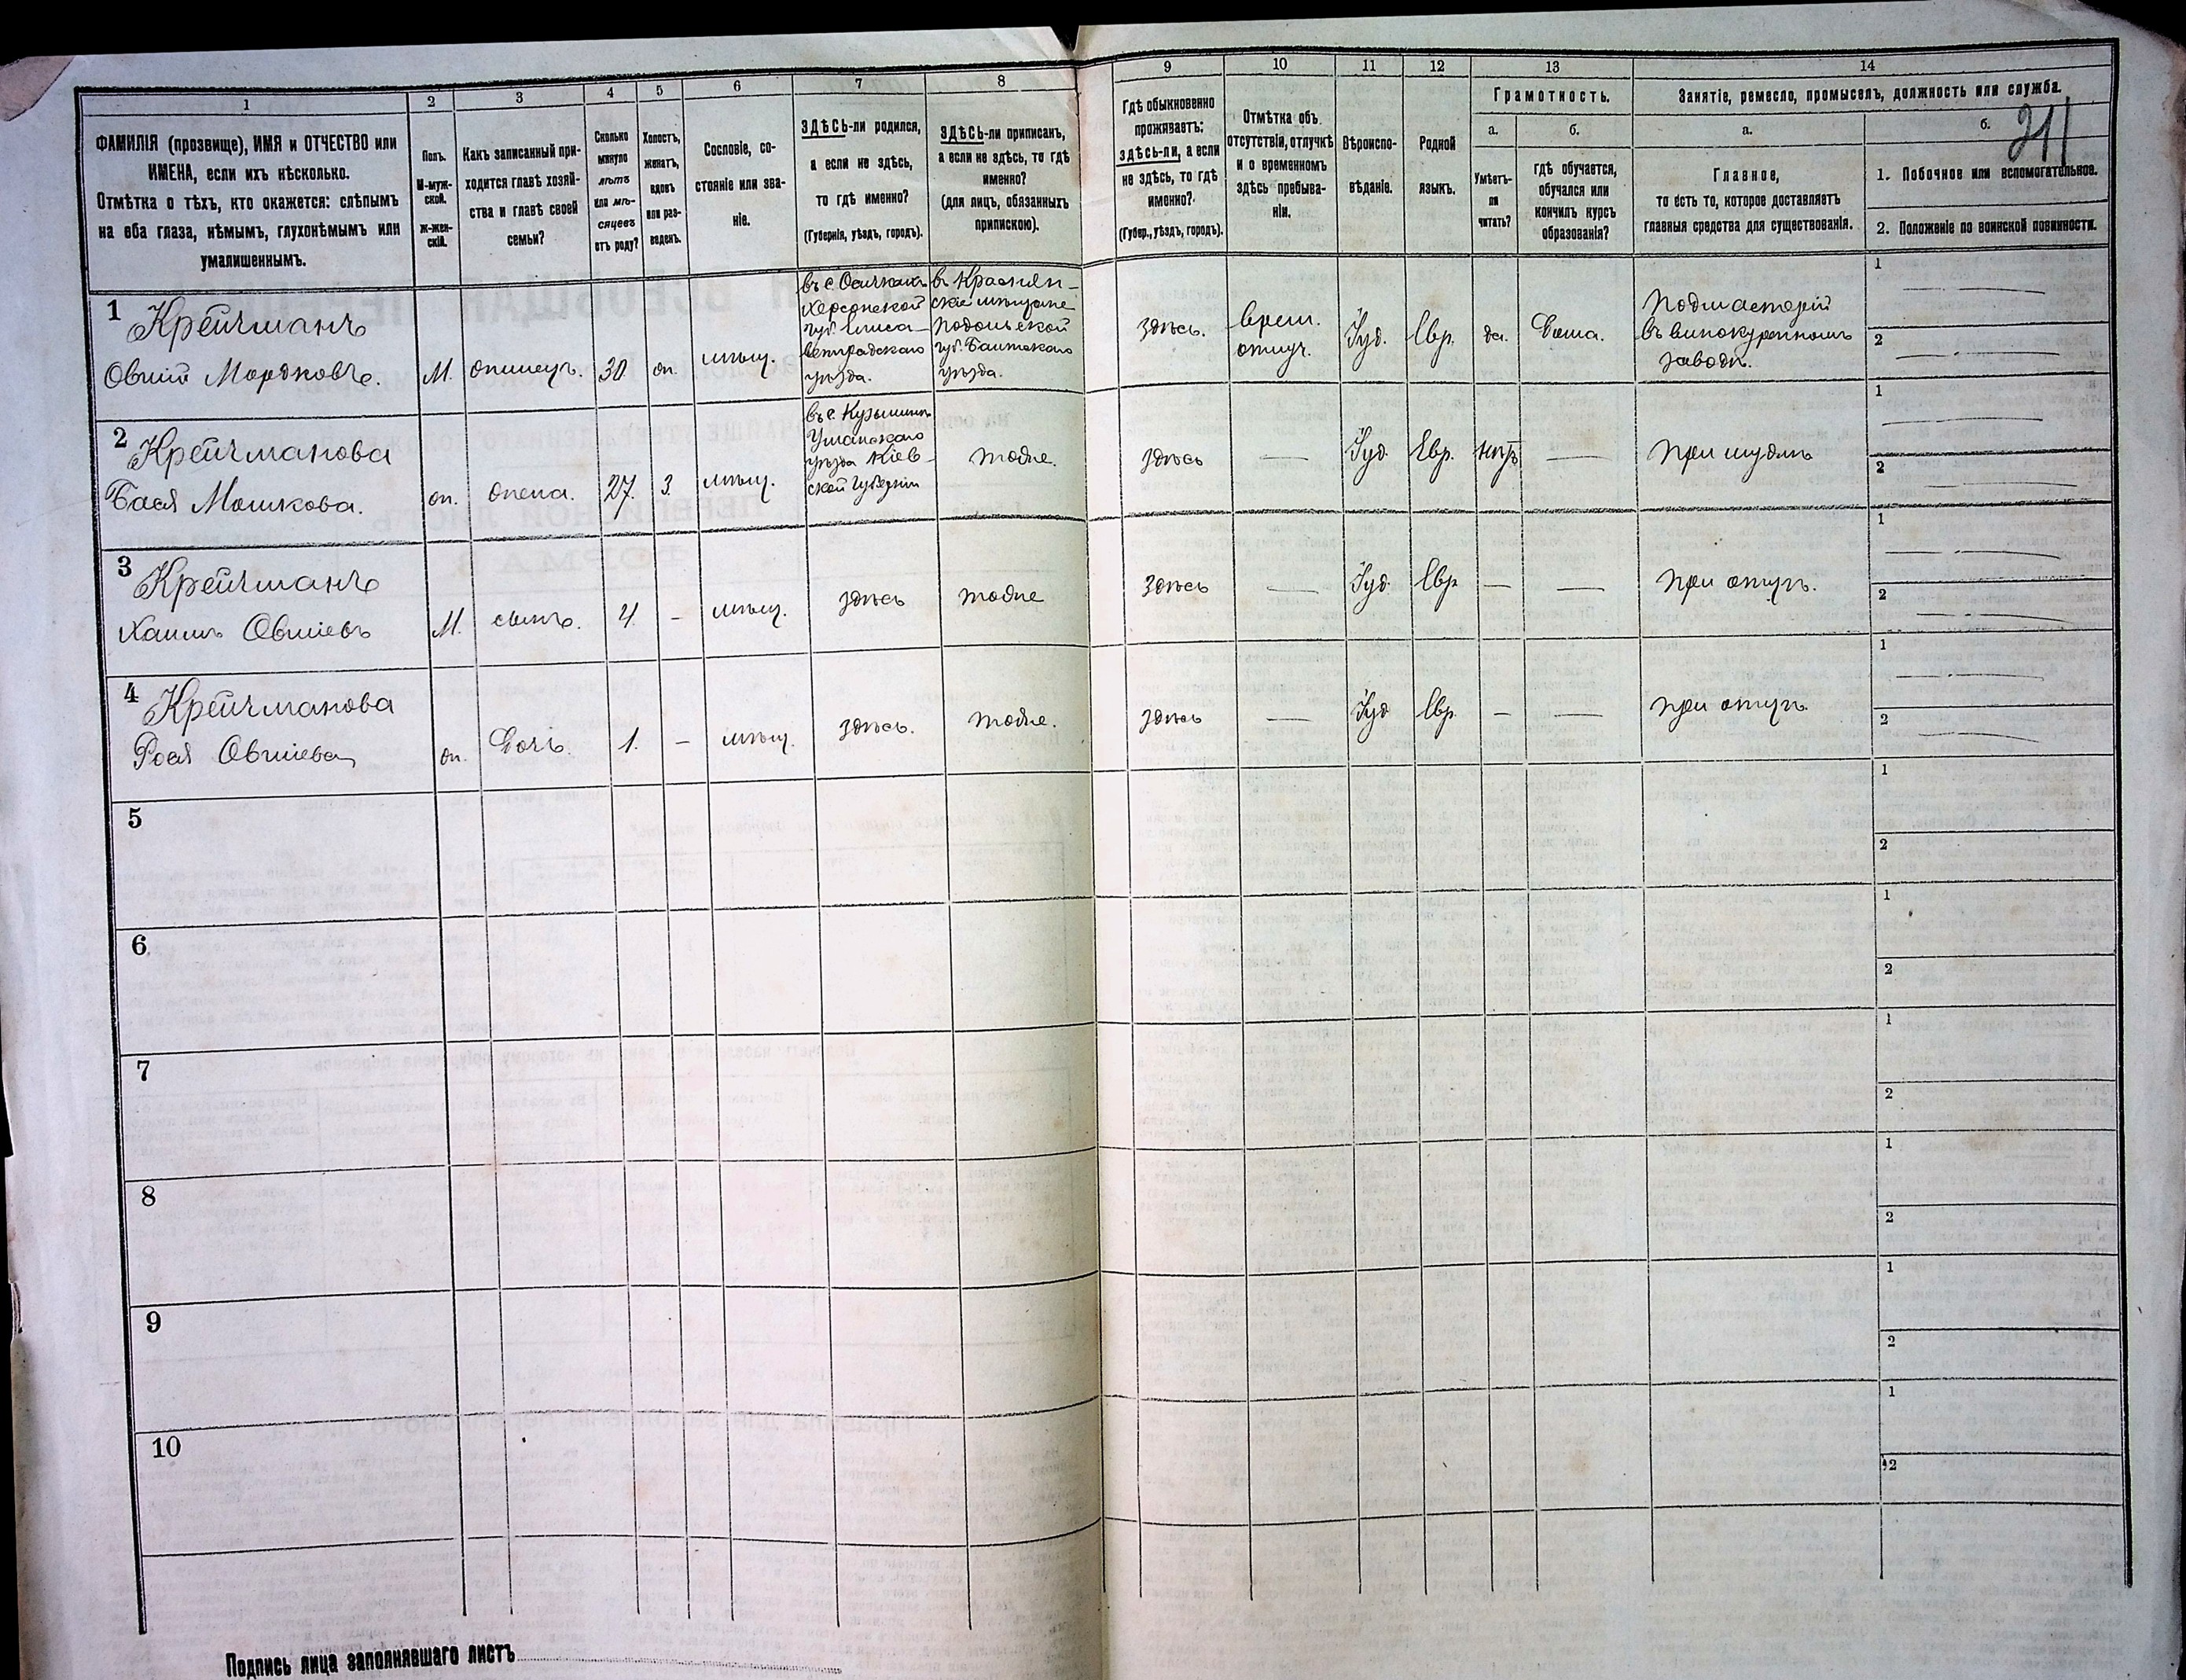 1
2
3
4
5
6
7
8
9
10
11
12
13
14
ФАМИЛІЯ (прозвище), ИМЯ и ОТЧЕСТВО или
ИМЕНА, если ихъ нѣсколько.
Отмѣтка о тѣхъ, кто окажется: слѣпымъ
на оба глаза, нѣмымъ, глухонѣмымъ или
умалишеннымъ.
Полъ.
М-муж-
ской.
Ж-жен-
скій.
Какъ записанный при-
ходится главѣ хозяй-
ства и главѣ своей
семьи?
Сколько
минуло
лѣтъ
или мѣ-
сяцевъ
отъ роду?
Холостъ,
женатъ,
вдовъ
или раз-
веденъ.
Сословіе, со-
стояніе или зва-
ніе.
ЗДѢСЬ-ли родился,
а если не здѣсь,
то гдѣ именно?
(Губернія, уѣздъ, городъ).
ЗДѢСЬ-ли приписанъ,
а если не здѣсь, то гдѣ
именно?
(для лицъ, обязанныхъ
припискою).
Гдѣ обыкновенно
проживаетъ:
здѣсь-ли, а если
не здѣсь, то гдѣ
именно?
(Губер., уѣздъ, городъ).
Отмѣтка объ
отсутствіи, отлучкѣ
и о временномъ
здѣсь пребыва-
ніи.
Вѣроиспо-
вѣданіе.
Родной
языкъ.
Грамотность.
а.
Умѣетъ-
ли
читать?
б.
гдѣ обучается,
обучался или
кончилъ курсъ
образованія?
Занятіе, ремесло, промыселъ, должность или служба.
а.
Главное,
то есть то, которое доставляетъ
главныя средства для существованія.
б.
211
1. Побочное или вспомогательное.
2. Положеніе по воинской повинности.
1 Крейчманъ
Овшій Мордковъ.
М.
30
жн.
мѣщ.
въ с.
Херсонской
губ. Елиса-
ветградскаго
уѣзда.
Подольской
губ. Балтскаго
уѣзда.
здѣсь.
врем.
отлуч.
Іуд.
Евр.
да.
Дома.
Подмастерій
въ винокуренномъ
заводѣ.
1
2
2 Крейчманова
Бася Мошкова.
ж.
жена.
27.
З.
мѣщ.
въ с.
Уманскаго
уѣзда Кіев-
ской Губерніи
тоже.
здѣсь
—
Іуд.
Евр.
нѣтъ
—
при мужѣ
1
2
3 Крейчманъ
Хаимъ Овшіевъ
М.
сынъ.
4.
–
мѣщ.
здѣсь
тоже
здѣсь
—
Іуд.
Евр
—
—
при отцѣ.
1
2
4 Крейчманова
Рося Овшіева
ж.
Дочь.
1.
–
мѣщ.
здѣсь.
тоже.
здѣсь
—
Іуд
Евр.
–
—
при отцѣ
1
2
5
1
2
6
1
2
7
1
2
8
1
2
9
1
2
10
1
2
Подпись лица заполнявшаго листъ